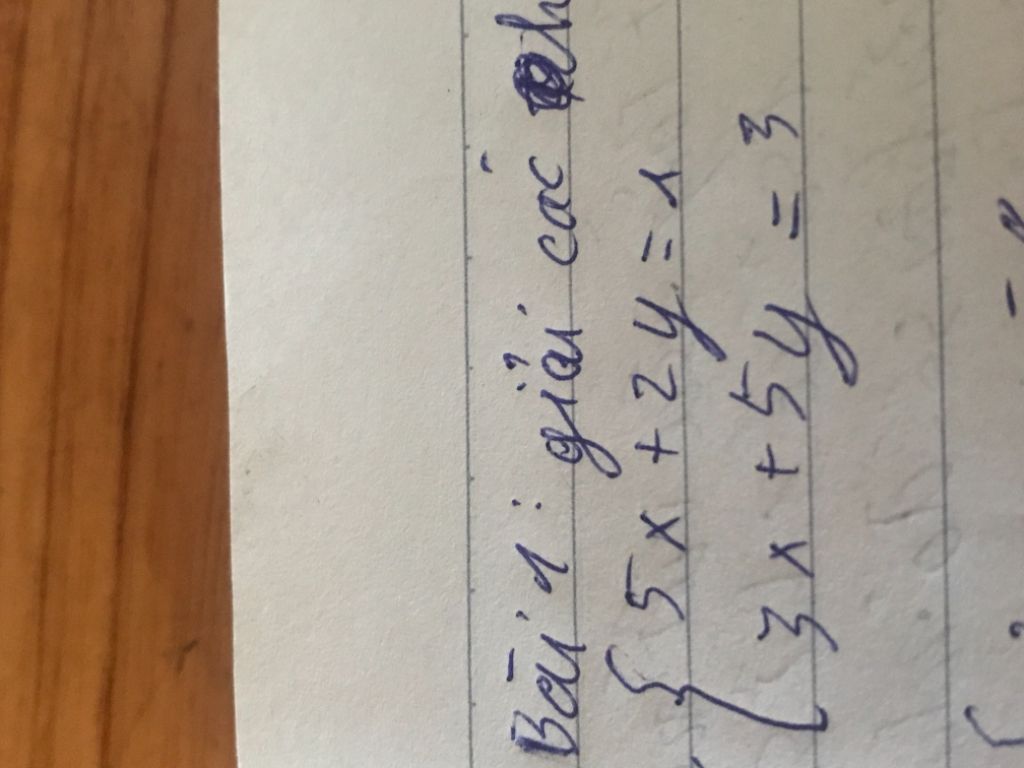 Bài 1: giải các
{ 5x + 2y = 1
3x + 5y = 3